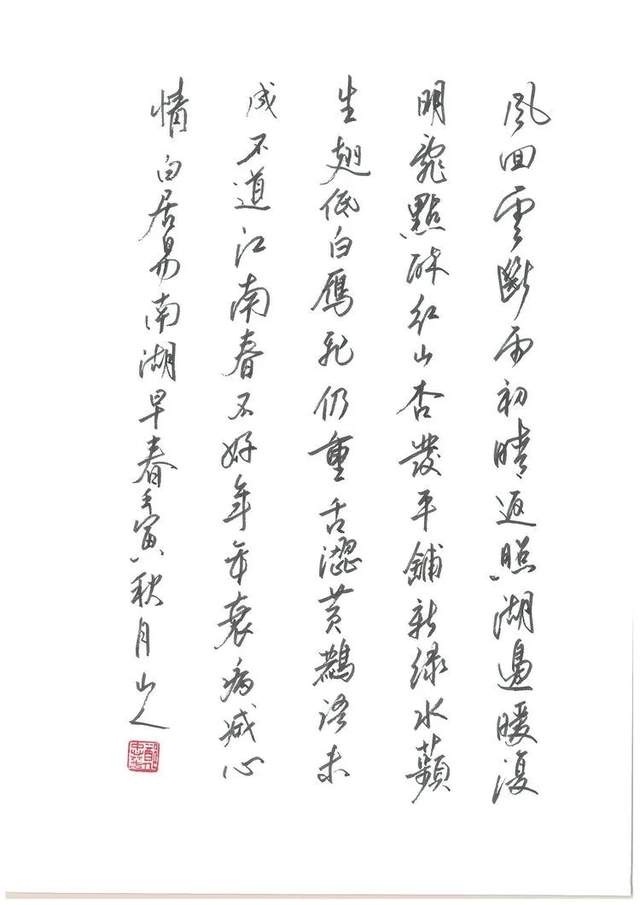 風回雲斷雨初晴返照湖邊暖復
明亂點碎紅山杏發平鋪新綠水蘋
生翅低白鴈飛仍重舌澀黃鸝語未
成不道江南春不好年年衰病減心
情白居易南湖早春壬寅秋月山人